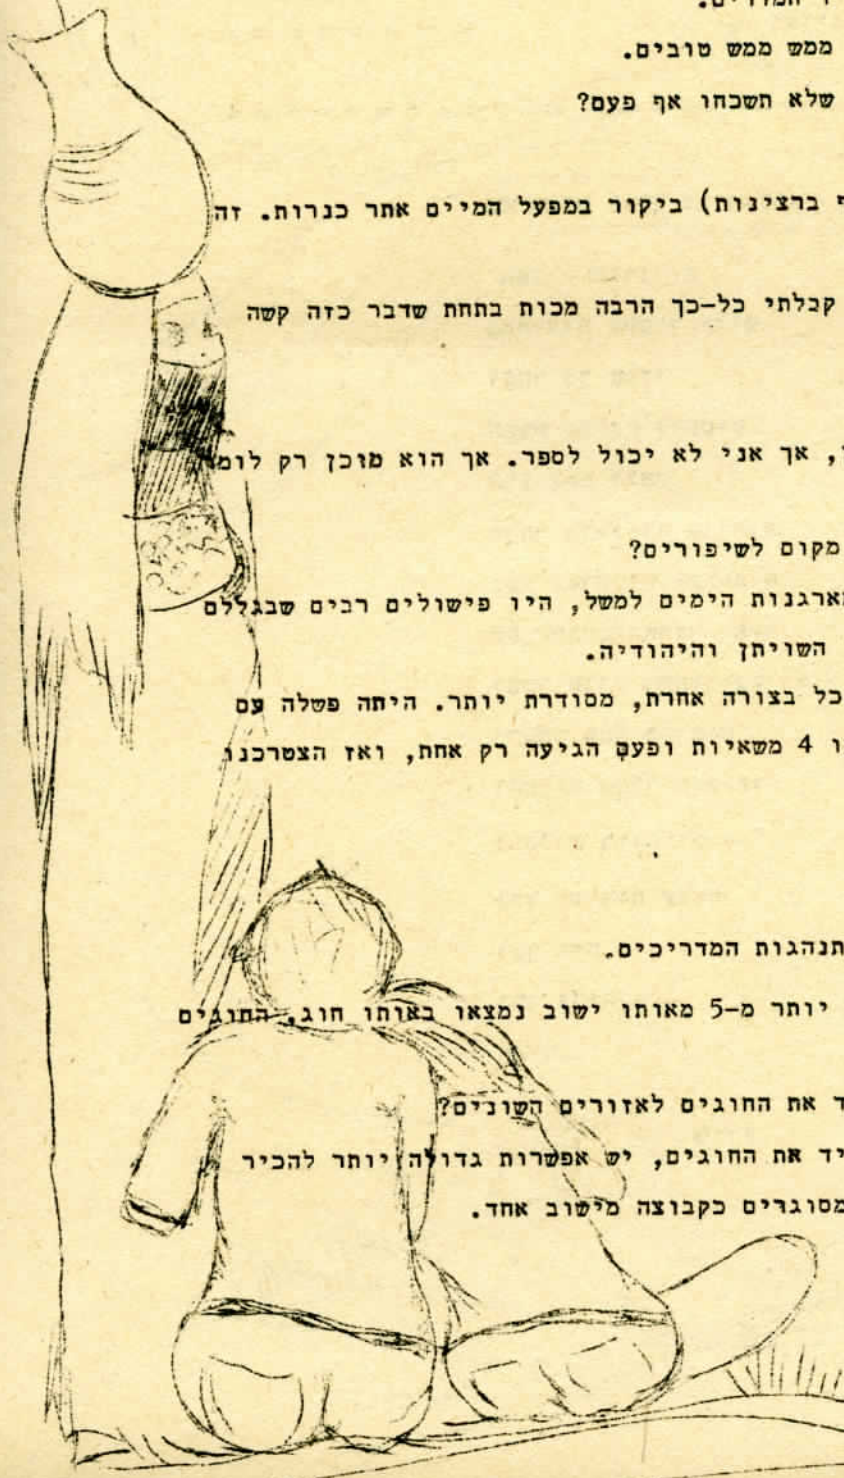 ממש ממש טובים.
שלא תשכחו אף פעם?
ברצינות) ביקור במפעל המיים אתר כנרות. זה
קבלתי כל-כך הרבה מכות בתחת שדבר כזה קשה
, אך אני לא יכול לספר. אך הוא מוכן רק לומ
מקום לשיפורים?
מארגנות הימים למשל, היו פישולים רבים שבגללם
השויתן והיהודיה.
כל בצורה אחרת, מסודרת יותר. היתה פשלה עם
ו 4 משאיות ופעם הגיעה רק אחת, ואז הצטרכנו
תנהגות המדריכים.
יותר מ-5 מאותו ישוב נמצאו באותו חוג. החוגים
ד את החוגים לאזורים השונים?
יד את החוגים, יש אפשרות גדולה יותר להכיר
מסוגרים כקבוצה מישוב אחד.